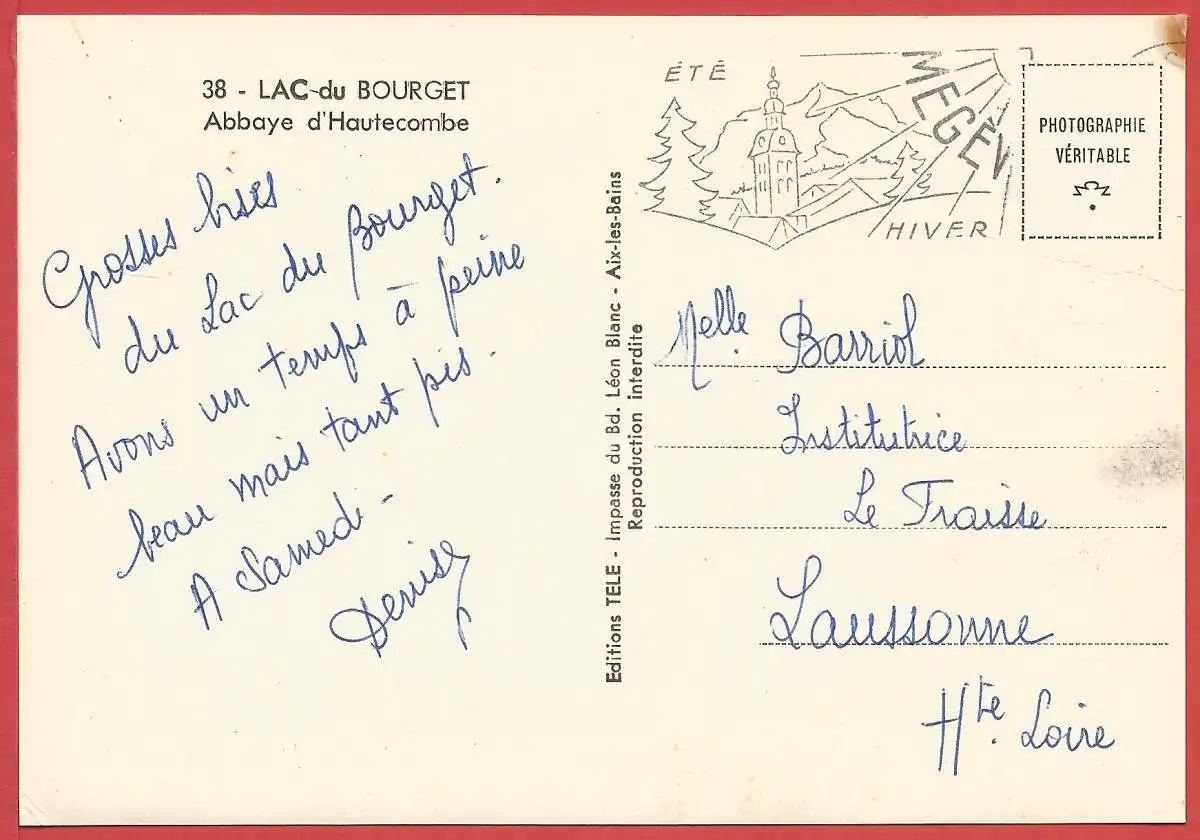 38 - LAC-du BOURGET
Abbaye d'Hautecombe
Grosses bises
du Lac du Bourget.
Avons un temps à peine
beau mais tant pis.
A Samedi -
Denise
Editions TELE - Impasse du Bd. Léon Blanc - Aix-les-Bains
Reproduction interdite
ÉTÉ
MEGÈV
HIVER
PHOTOGRAPHIE
VÉRITABLE
Melle Barriol
Institutrice
Le Fraisse
Laussonne
Hte. Loire